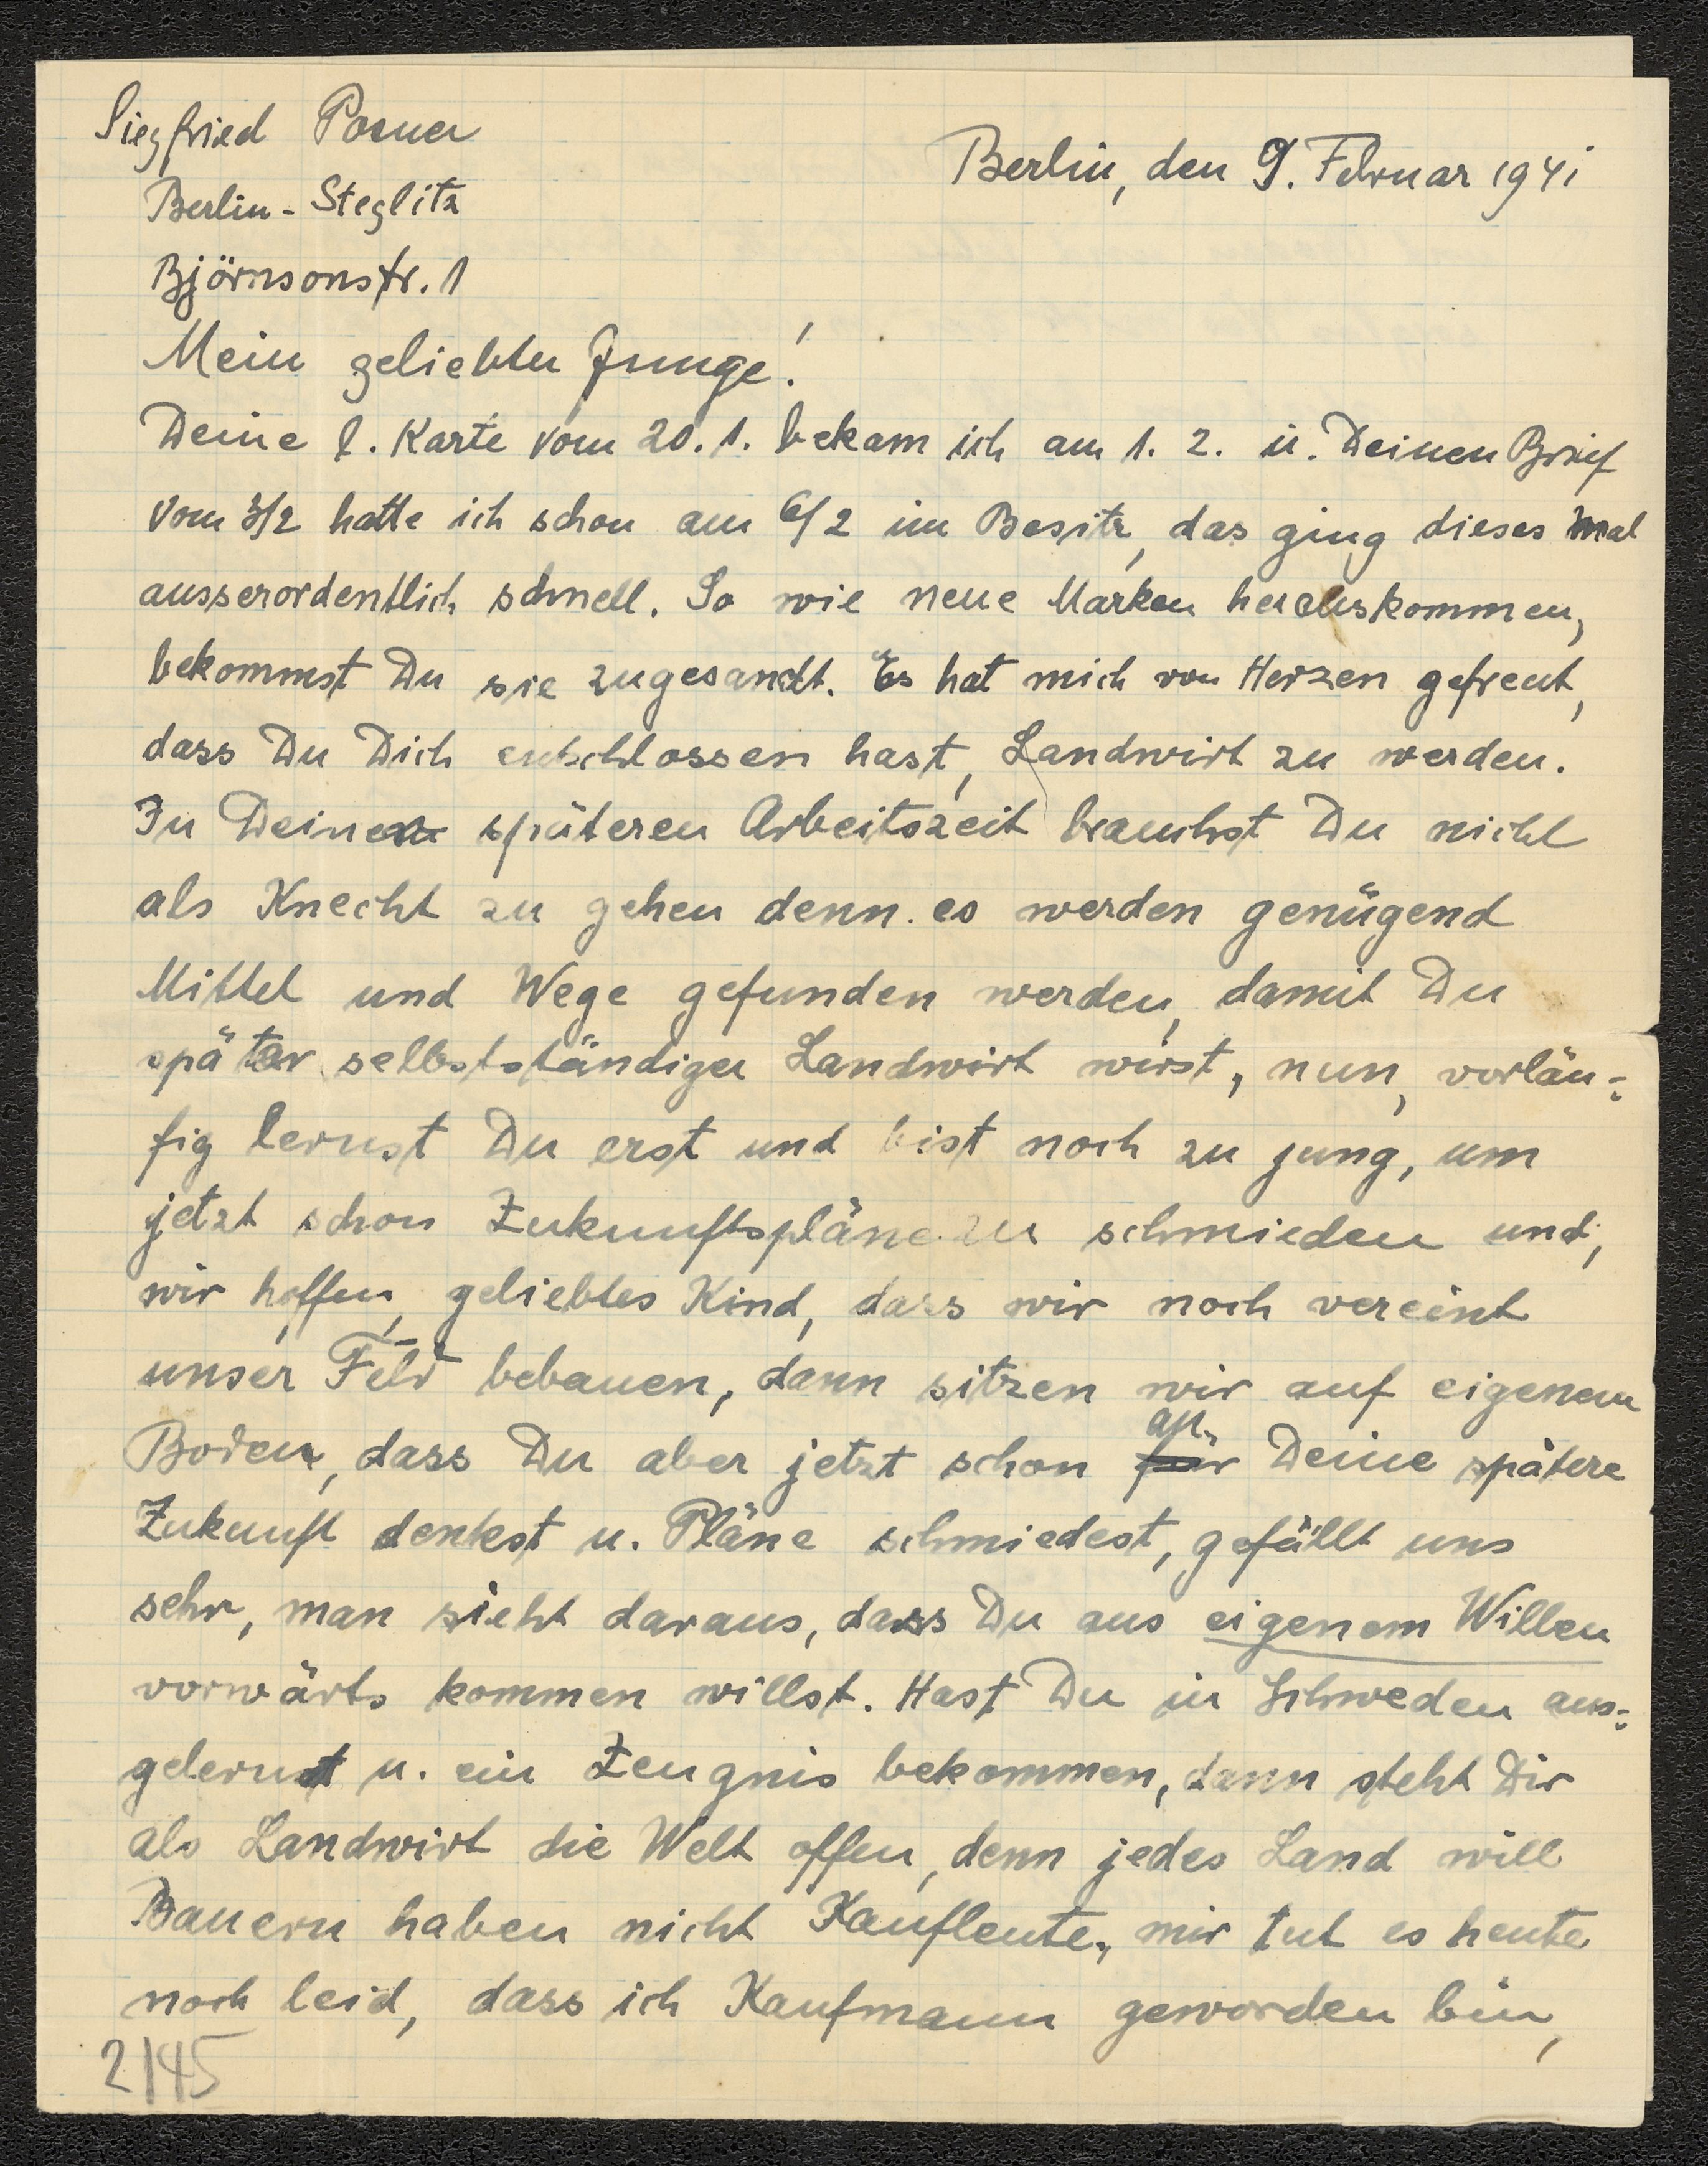 Siegfried Posner
Berlin, den 9. Februar 1941
Berlin-Steglitz
Björnsonstr. 1
Mein geliebter Junge!
Deine l. Karte vom 20. 1. bekam ich am 1. 2. u. Deinen Brief
vom 3/2 hatte ich schon am 6/2 im Besitz, das ging dieses mal
ausserordentlich schnell. So wie neue Marken herauskommen,
bekommst Du sie zugesandt. Es hat mich von Herzen gefreut,
dass Du Dich entschlossen hast, Landwirt zu werden.
In Deiner späteren Arbeitszeit brauchst Du nicht
als Knecht zu gehen denn es werden genügend
Mittel und Wege gefunden werden, damit Du
später selbstständiger Landwirt wirst, nun, vorläu-
fig lernst Du erst und bist noch zu jung, um
jetzt schon Zukunftspläne zu schmieden und,
wir hoffen, geliebtes Kind, dass wir noch vereint
unser Feld bebauen, dann sitzen wir auf eigenem
Boden, dass Du aber jetzt schon für an Deine spätere
Zukunft denkst u. Pläne schmiedest, gefällt uns
sehr, man sieht daraus, dass Du aus eigenem Willen
vorwärts kommen willst. Hast Du in Schweden aus-
gelernt u. ein Zeugnis bekommen, dann steht Dir
als Landwirt die Welt offen, denn jedes Land will
Bauern haben nicht Kaufleute, mir tut es heute
noch leid, dass ich Kaufmann geworden bin,
2/45